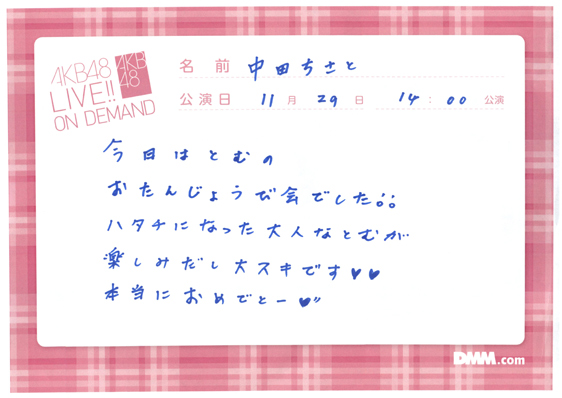 AKB48
LIVE!!
ON DEMAND
AKB
48
名前 中田ちさと
公演日 11月29日 14:00公演
今日はとむの
おたんじょうび会でした。。
ハタチになった大人なとむが
楽しみだし大スキです♥♥
本当におめでとー♥〃
DMM.com